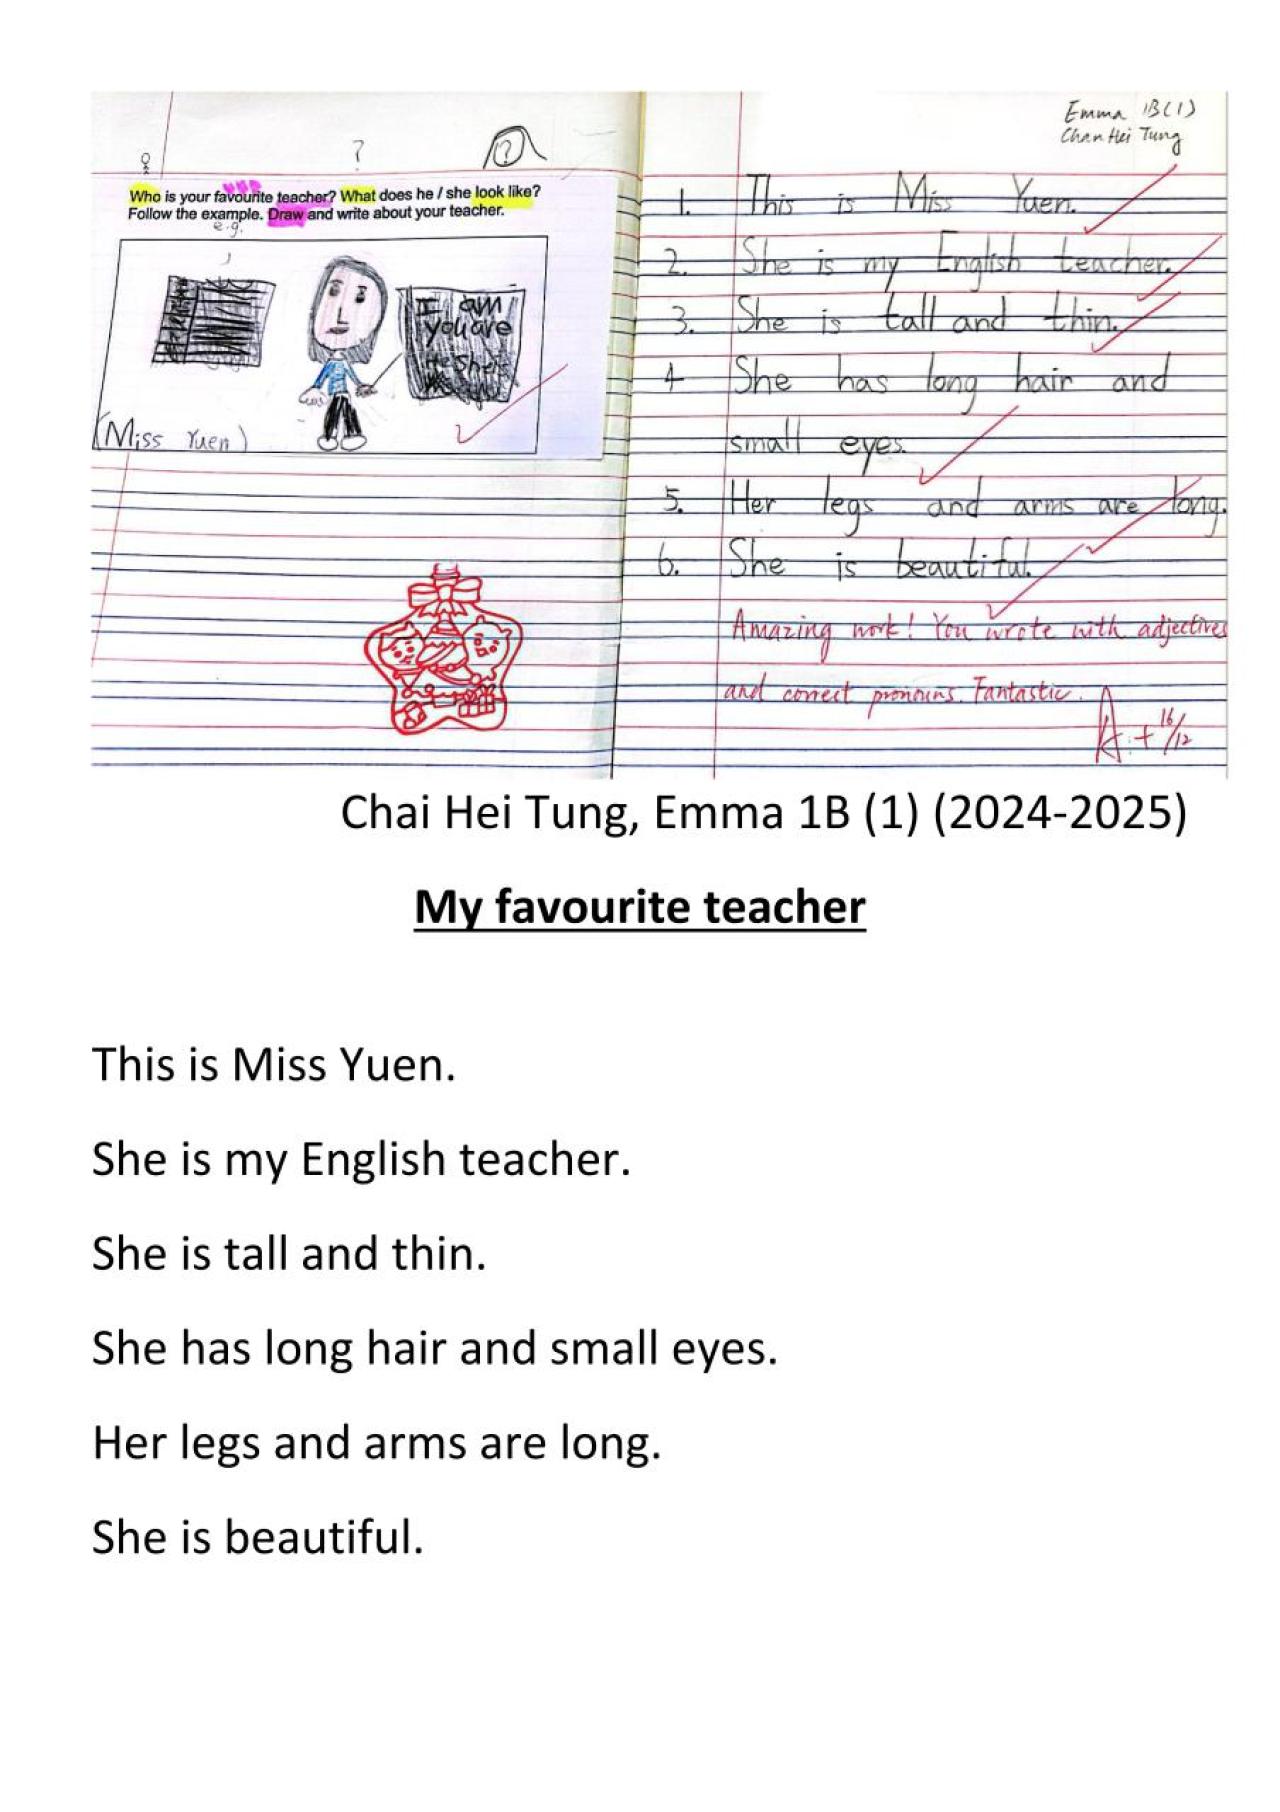 Emma 1B(1)
Chan Hei Tung
?
?
Who is your favourite teacher? What does he / she look like?
Follow the example. Draw and write about your teacher.
e.g.
I am
you are
He She is
(Miss Yuen)
1. This is Miss Yuen.
2. She is my English teacher.
3. She is tall and thin.
4 She has long hair and
small eyes.
5. Her legs and arms are long.
6. She is beautiful.
Amazing work! You wrote with adjectives
and correct pronouns. Fantastic.
A+ 16/12
Chai Hei Tung, Emma 1B (1) (2024-2025)
My favourite teacher
This is Miss Yuen.
She is my English teacher.
She is tall and thin.
She has long hair and small eyes.
Her legs and arms are long.
She is beautiful.